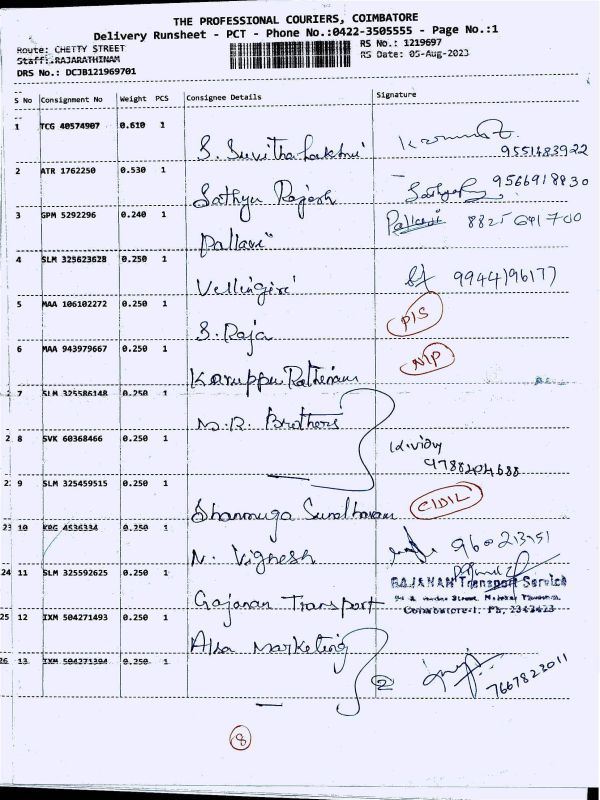 THE PROFESSIONAL COURIERS, COIMBATORE
Delivery Runsheet - PCT - Phone No.:0422-3505555 - Page No.:1
Route: CHETTY STREET
RS No.: 1219697
Staff:.RAJARATHINAM
RS Date: 05-Aug-2023
DRS No.: DCJB121969701
S No Consignment No Weight PCS Consignee Details Signature
1 TCG 40574907 0.610 1 S. Suvitha Lakshmi 9551483922
2 ATR 1762250 0.530 1 Sathya Rajesh 9566918830
3 GPM 5292296 0.240 1 Pallavi Pallavi 8825691700
4 SLM 325623628 0.250 1 Vellingiri 9944196177
5 MAA 106102272 0.250 1 S. Raja PIS
6 MAA 943979667 0.250 1 Karuppu Rathinam NIP
2 7 SLM 325586148 0.250 1 M.R. Brothers
2 8 SVK 60368466 0.250 1 9788204688
2 9 SLM 325459515 0.250 1 Shanmuga Sundharam CIDIL
23 10 KRG 4536334 0.250 1 N. Vignesh
24 11 SLM 325592625 0.250 1 Gajanan Transport GAJANAN Transport Service
Coimbatore-1. Ph. 2342423
25 12 IXM 504271493 0.250 1 Alsa Marketing
26 13 IXM 504271394 0.250 1 2 7667822011
8